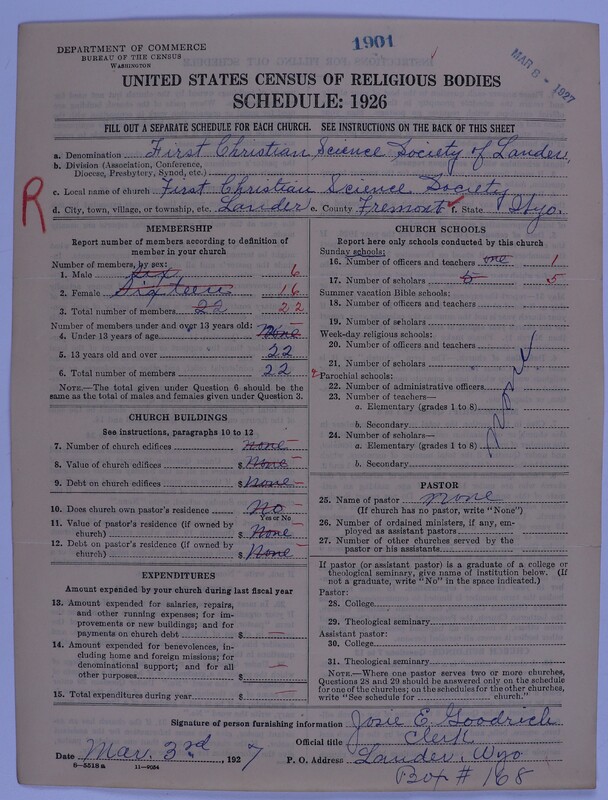 DEPARTMENT OF COMMERCE
BUREAU OF THE CENSUS
WASHINGTON
1901
MAR 8 - 1927
UNITED STATES CENSUS OF RELIGIOUS BODIES
SCHEDULE: 1926
FILL OUT A SEPARATE SCHEDULE FOR EACH CHURCH. SEE INSTRUCTIONS ON THE BACK OF THIS SHEET
a. Denomination First Christian Science Society of Lander,
b. Division (Association, Conference, Diocese, Presbytery, Synod, etc.)
c. Local name of church First Christian Science Society
R
d. City, town, village, or township, etc. Lander e. County Fremont f. State Wyo.
MEMBERSHIP
Report number of members according to definition of
member in your church
Number of members, by sex:
1. Male Six 6
2. Female Sixteen 16
3. Total number of members 22 22
Number of members under and over 13 years old:
4. Under 13 years of age None
5. 13 years old and over 22
6. Total number of members 22
NOTE.—The total given under Question 6 should be
same as the total of males and females given under Question 3.
CHURCH BUILDINGS
See instructions, paragraphs 10 to 12
7. Number of church edifices None
8. Value of church edifices $ None
9. Debt on church edifices $ None
10. Does church own pastor's residence No
Yes or No
11. Value of pastor's residence (if owned by
church) $ None
12. Debt on pastor's residence (if owned by
church) $ None
EXPENDITURES
Amount expended by your church during last fiscal year
13. Amount expended for salaries, repairs,
and other running expenses; for im-
provements or new buildings; and for
payments on church debt $ —
14. Amount expended for benevolences, in-
cluding home and foreign missions; for
denominational support; and for all
other purposes $ —
15. Total expenditures during year $ —
CHURCH SCHOOLS
Report here only schools conducted by this church
Sunday schools:
16. Number of officers and teachers one 1
17. Number of scholars 5 5
Summer vacation Bible schools:
18. Number of officers and teachers
19. Number of scholars
Week-day religious schools:
20. Number of officers and teachers
21. Number of scholars
Parochial schools:
22. Number of administrative officers
23. Number of teachers—
a. Elementary (grades 1 to 8)
b. Secondary
24. Number of scholars—
a. Elementary (grades 1 to 8)
b. Secondary
None
PASTOR
25. Name of pastor None
(If church has no pastor, write "None")
26. Number of ordained ministers, if any, em-
ployed as assistant pastors
27. Number of other churches served by the
pastor or his assistants
If pastor (or assistant pastor) is a graduate of a college or
theological seminary, give name of institution below. (If
not a graduate, write "No" in the space indicated.)
Pastor:
28. College
29. Theological seminary
Assistant pastor:
30. College
31. Theological seminary
NOTE.—Where one pastor serves two or more churches,
Questions 28 and 29 should be answered only on the schedule
for one of the churches; on the schedules for the other churches,
write "See schedule for church."
Signature of person furnishing information Josie E. Goodrich
Official title Clerk
Date Mar. 3rd, 1927 P. O. Address Lander, Wyo
8-5518a 11-9054
Box # 168